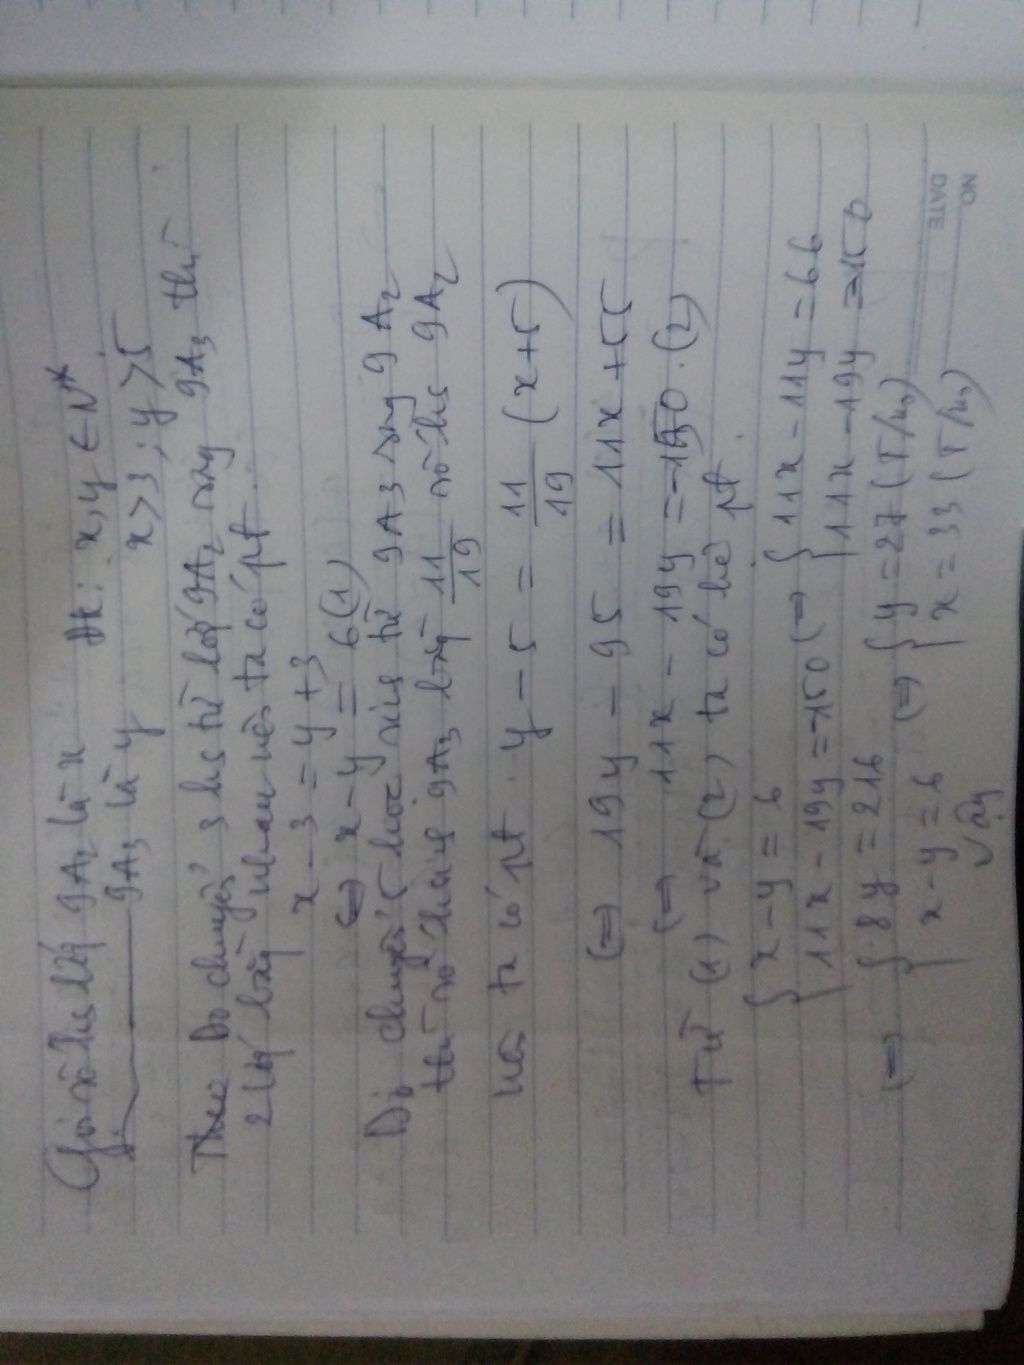 Gọi số hs lớp 9A2 là x Đk: x, y ∈ N*
9A3 là y x > 3 ; y > 5
Theo Do chuyển 3 hs từ lớp 9A2 sang 9A3 thì
2 lớp bằng nhau nên ta có pt.
x - 3 = y + 3
⇔ x - y = 6 (1)
Do chuyển 5 học sinh từ 9A3 sang 9A2
thì số hsing 9A3 bằng 11/19 số hs 9A2
nên ta có pt. y - 5 = 11/19 (x + 5)
⇔ 19y - 95 = 11x + 55
⇔ 11x - 19y = -150. (2)
Từ (1) và (2) ta có hệ pt.
{ x - y = 6 ⇔ { 11x - 11y = 66
{ 11x - 19y = -150 { 11x - 19y = -150
⇔ { 8y = 216 ⇔ { y = 27 (T/m)
{ x - y = 6 { x = 33 (T/m)
Vậy
NO.
DATE